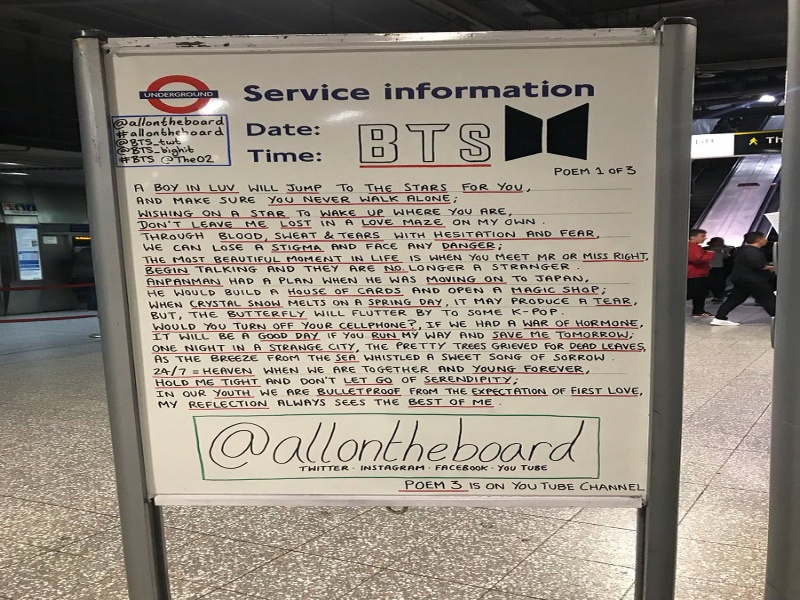 UNDERGROUND
Service information
@allontheboard
#allontheboard
@BTS_twt
@BTS_bighit
#BTS @TheO2
Date:
Time:
BTS
POEM 1 OF 3
A BOY IN LUV WILL JUMP TO THE STARS FOR YOU,
AND MAKE SURE YOU NEVER WALK ALONE;
WISHING ON A STAR TO WAKE UP WHERE YOU ARE,
DON'T LEAVE ME LOST IN A LOVE MAZE ON MY OWN.
THROUGH BLOOD, SWEAT & TEARS WITH HESITATION AND FEAR,
WE CAN LOSE A STIGMA AND FACE ANY DANGER;
THE MOST BEAUTIFUL MOMENT IN LIFE IS WHEN YOU MEET MR OR MISS RIGHT,
BEGIN TALKING AND THEY ARE NO LONGER A STRANGER.
ANPANMAN HAD A PLAN WHEN HE WAS MOVING ON TO JAPAN,
HE WOULD BUILD A HOUSE OF CARDS AND OPEN A MAGIC SHOP;
WHEN CRYSTAL SNOW MELTS ON A SPRING DAY, IT MAY PRODUCE A TEAR,
BUT, THE BUTTERFLY WILL FLUTTER BY TO SOME K-POP.
WOULD YOU TURN OFF YOUR CELLPHONE?, IF WE HAD A WAR OF HORMONE,
IT WILL BE A GOOD DAY IF YOU RUN MY WAY AND SAVE ME TOMORROW;
ONE NIGHT IN A STRANGE CITY, THE PRETTY TREES GRIEVED FOR DEAD LEAVES,
AS THE BREEZE FROM THE SEA WHISTLED A SWEET SONG OF SORROW.
24/7 = HEAVEN WHEN WE ARE TOGETHER AND YOUNG FOREVER,
HOLD ME TIGHT AND DON'T LET GO OF SERENDIPITY;
IN OUR YOUTH WE ARE BULLETPROOF FROM THE EXPECTATION OF FIRST LOVE,
MY REFLECTION ALWAYS SEES THE BEST OF ME.
@allontheboard
TWITTER · INSTAGRAM · FACEBOOK · YOU TUBE
POEM 3 IS ON YOU TUBE CHANNEL